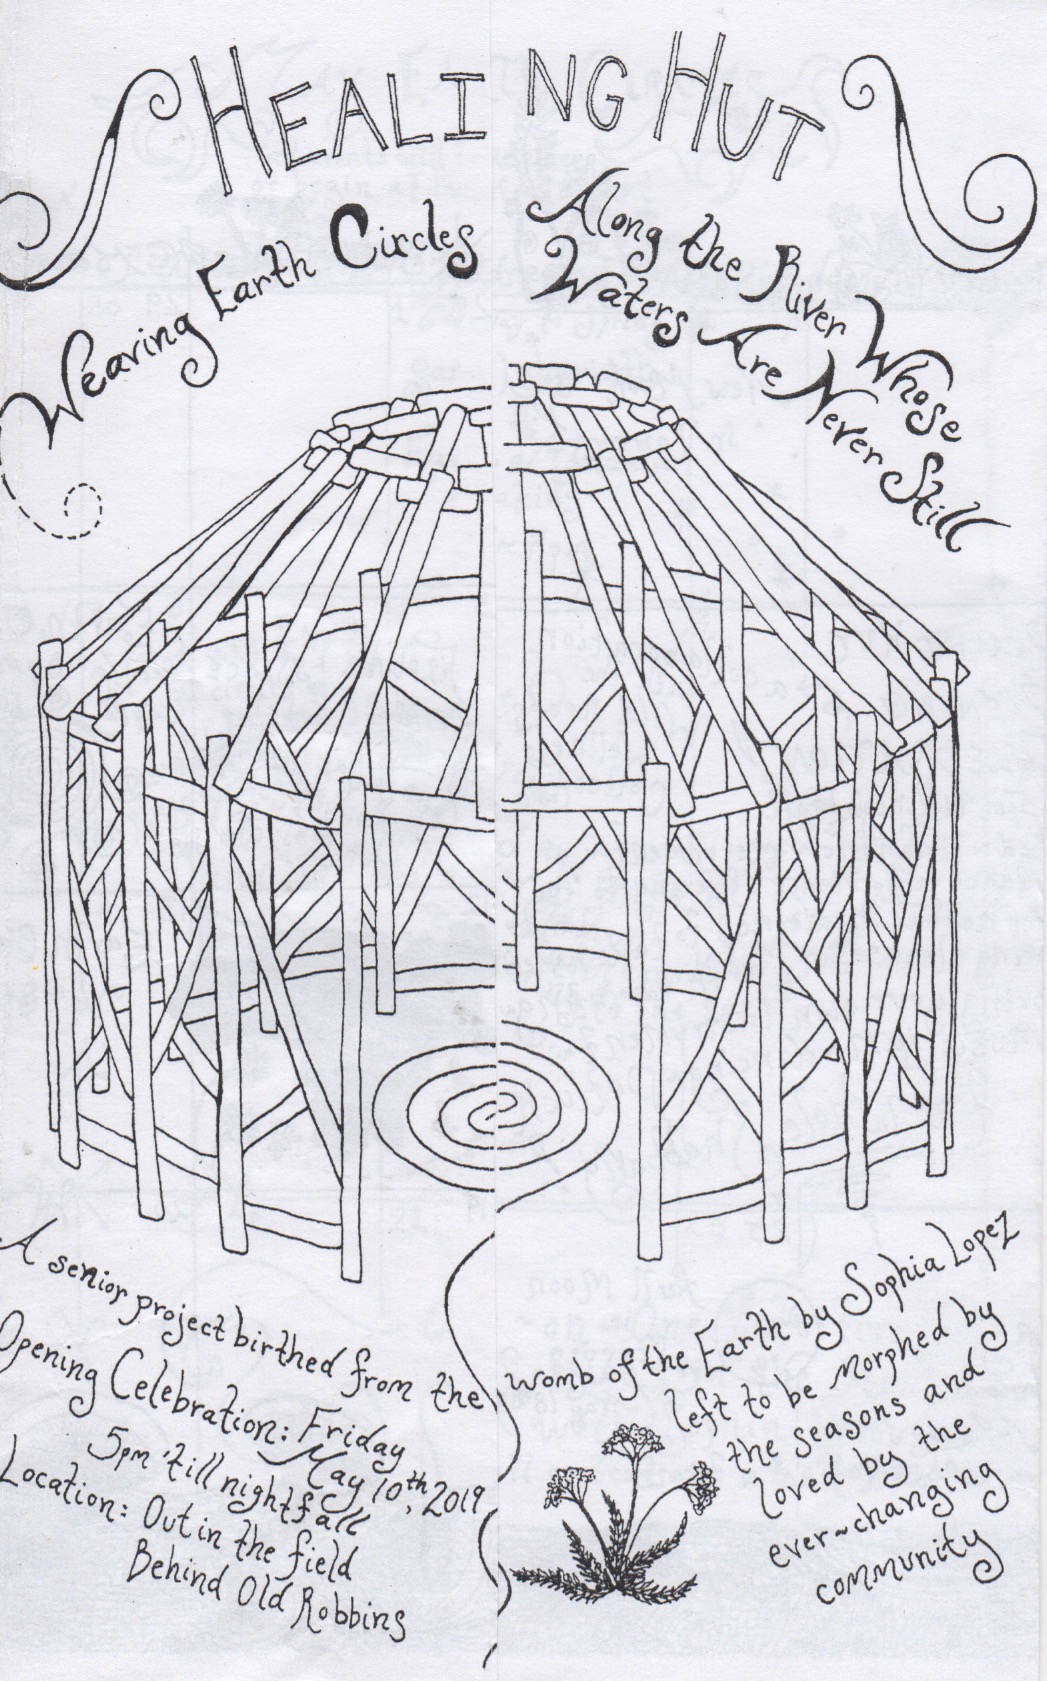 HEALING HUT
Weaving Earth Circles
Along the River Whose
Waters Are Never Still
A senior project birthed from the
womb of the Earth by Sophia Lopez
Opening Celebration: Friday
May 10th, 2019
5pm 'till nightfall
Location: Out in the field
Behind Old Robbins
left to be morphed by
the seasons and
loved by the
ever~changing
community